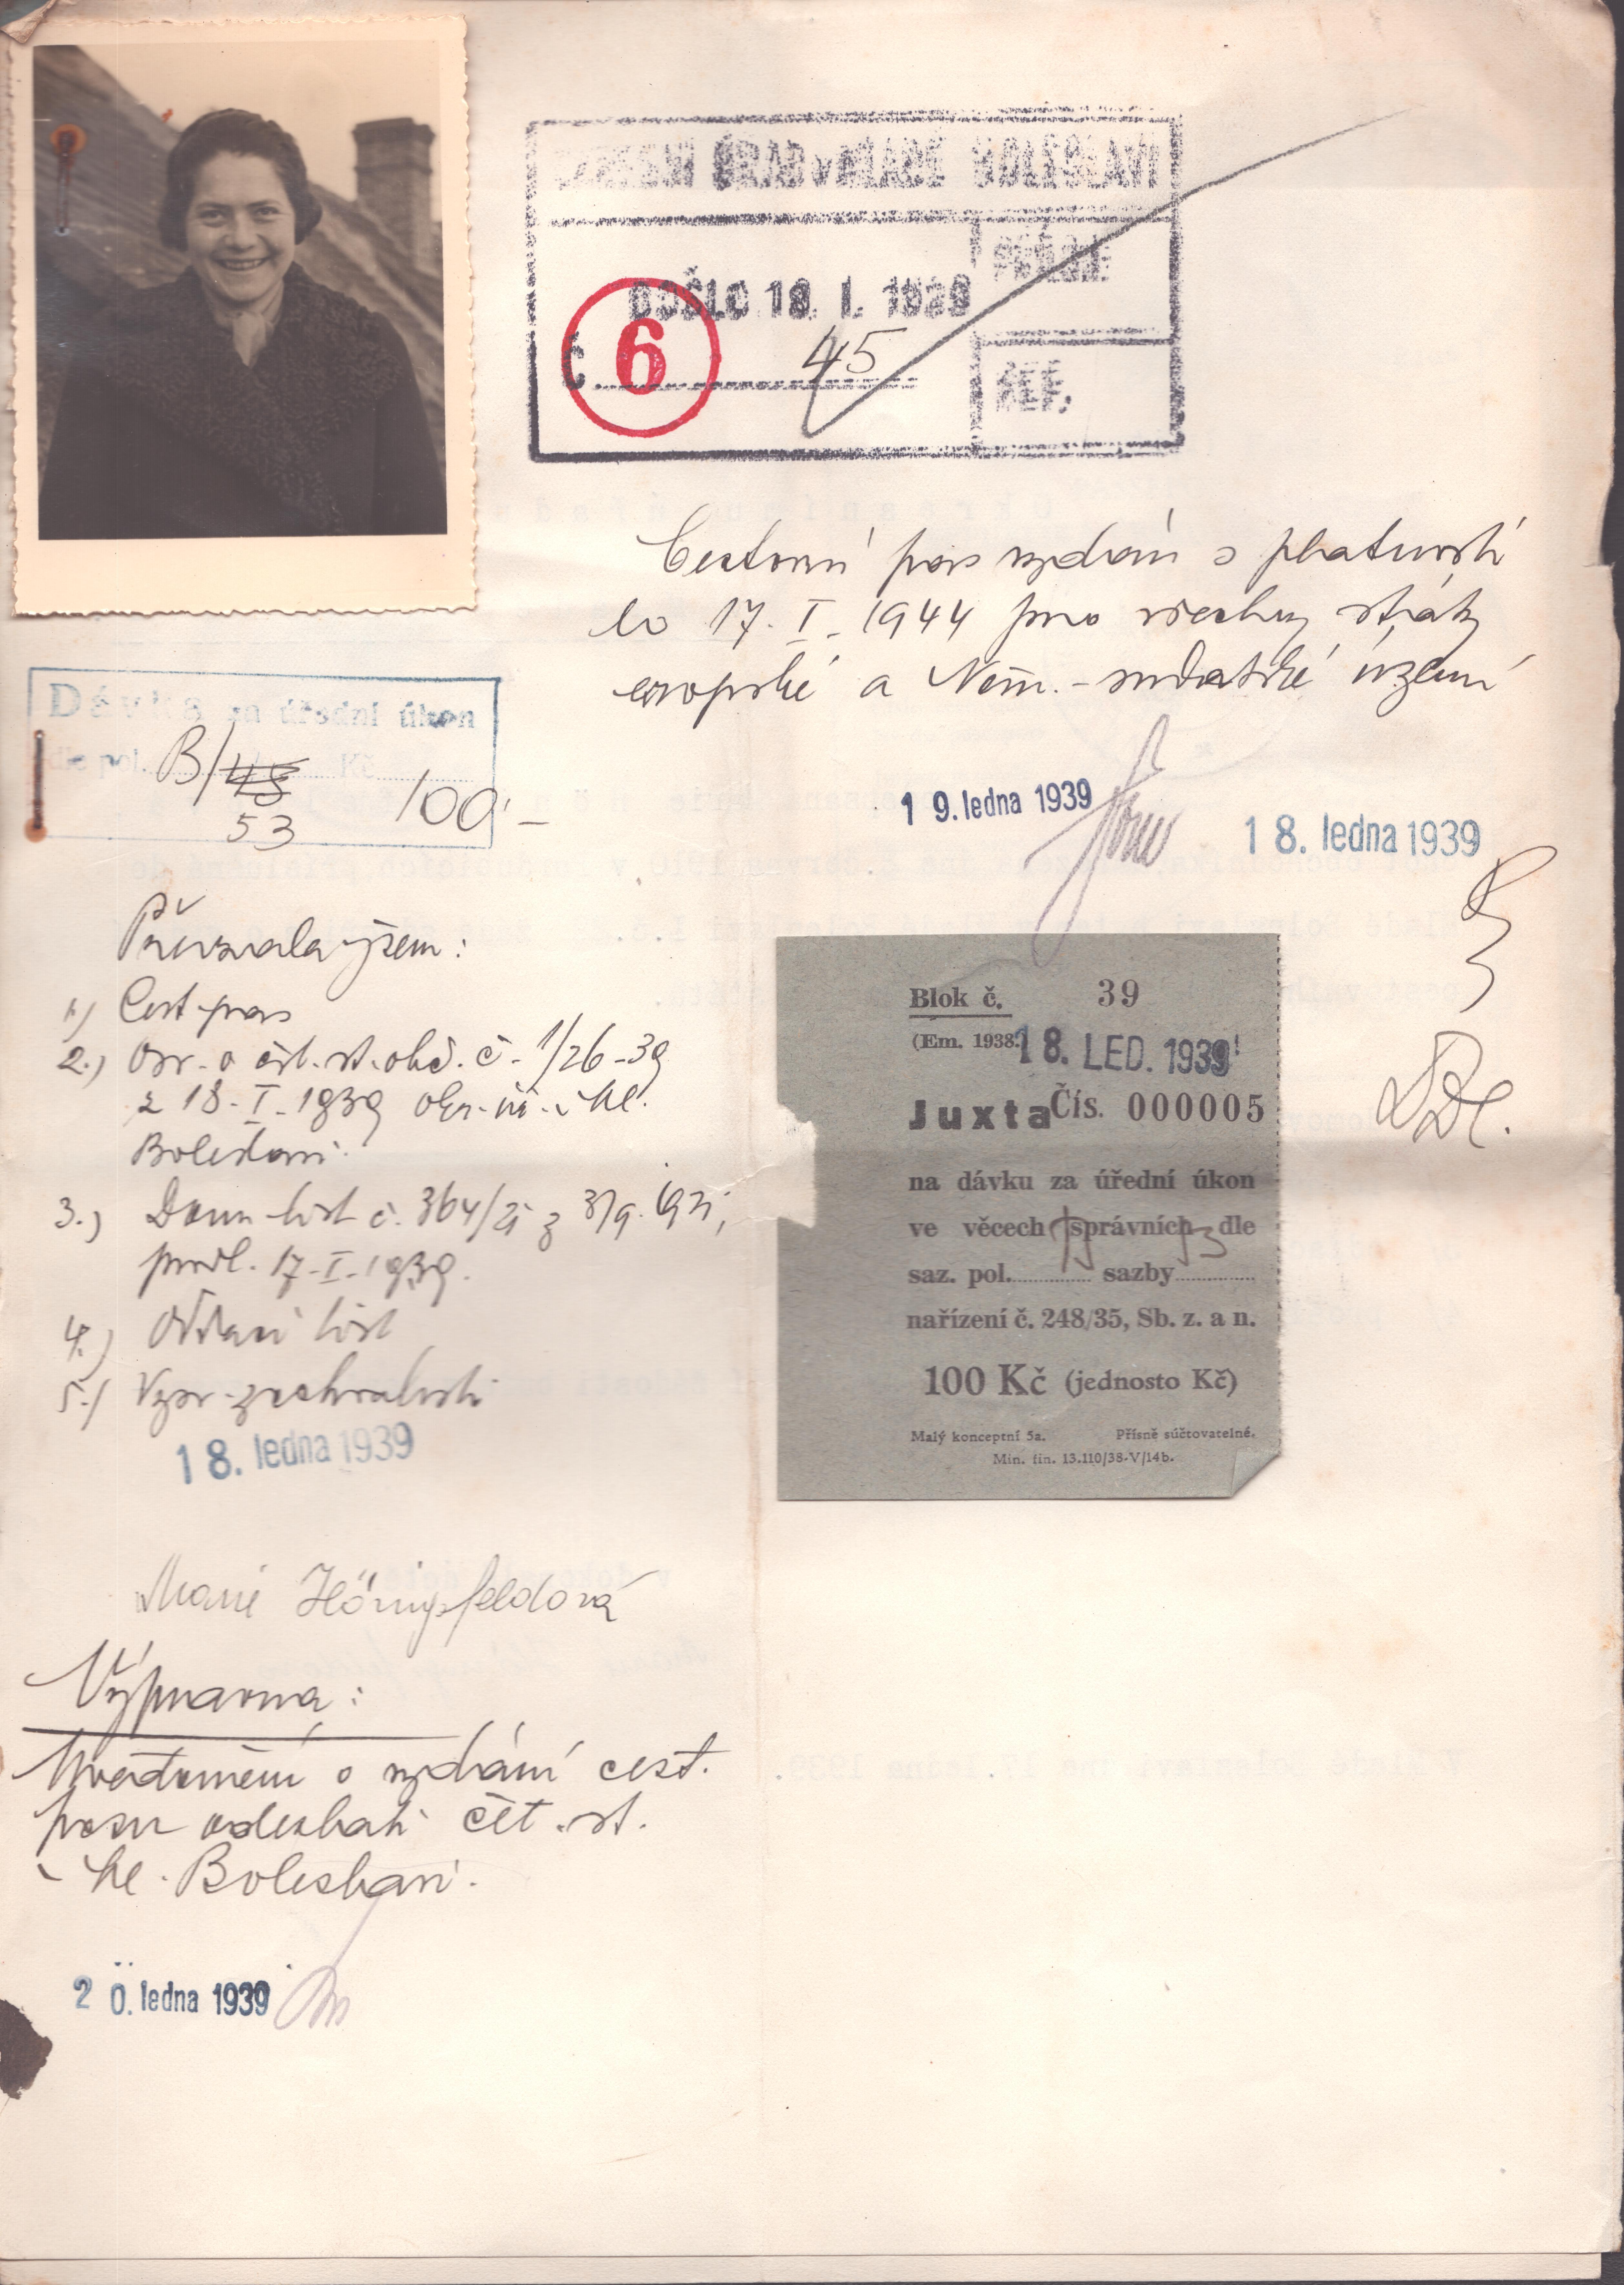 OKRESNÍ ÚŘAD v MLADÉ BOLESLAVI
DOŠLO 18. I. 1939
PŘÍLOH:
Č. 6 45
REF.
Cestovní pas vydán s platností
do 17. I. 1944 pro všechny státy
evropské a Něm.-sudetské území
19. ledna 1939
18. ledna 1939
Dávka za úřední úkon
dle pol. B/48 Kč
53 100,-
Převzala jsem:
1.) Cest. pas
2.) Osv. o čsl. st. obč. č. 1/26-39
z 18. I. 1939 okr. úř. v Ml.
Boleslavi.
3.) Dom. list č. 364/21 z 3/9. 1921,
prodl. 17. I. 1939.
4.) Oddací list
5.) Vysv. zachovalosti
18. ledna 1939
Marie Hönigsfeldová
Blok č. 39
(Em. 1938.)
18. LED. 1939
Juxta Čís. 000005
na dávku za úřední úkon
ve věcech správních dle
saz. pol. B sazby 53
nařízení č. 248/35, Sb. z. a n.
100 Kč (jednosto Kč)
Malý konceptní 5a. Přísně súčtovatelné.
Min. fin. 13.110/38-V/14b.
Výpravna:
Uvědomění o vydání cest.
pasu odeslati čet. st.
v Ml. Boleslavi.
20. ledna 1939